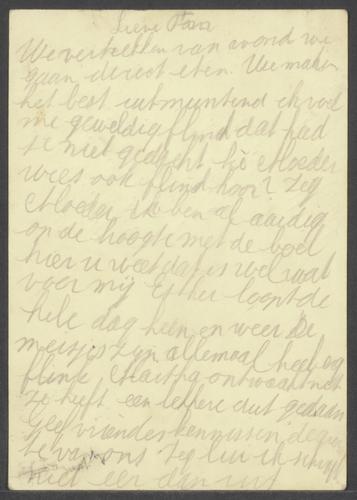 Lieve Paus
We vertrekken van avond we
gaan direct eten. We maken
het best uitmuntend ik voel
me geweldig flink dat had
je niet gedacht hè Moeder
wees ook flink hoor? Zeg
Moeder ik ben al aardig
op de hoogte met de boel
hier u weet dat is wel wat
voor mij Esther loopt de
hele dag heen en weer De
meisjes zijn allemaal heel erg
flink Martha ontwaakt net
ze heeft een lekkere dut gedaan
geef vrienden kennissen, de groe
te van ons Zeg
niet eer dan